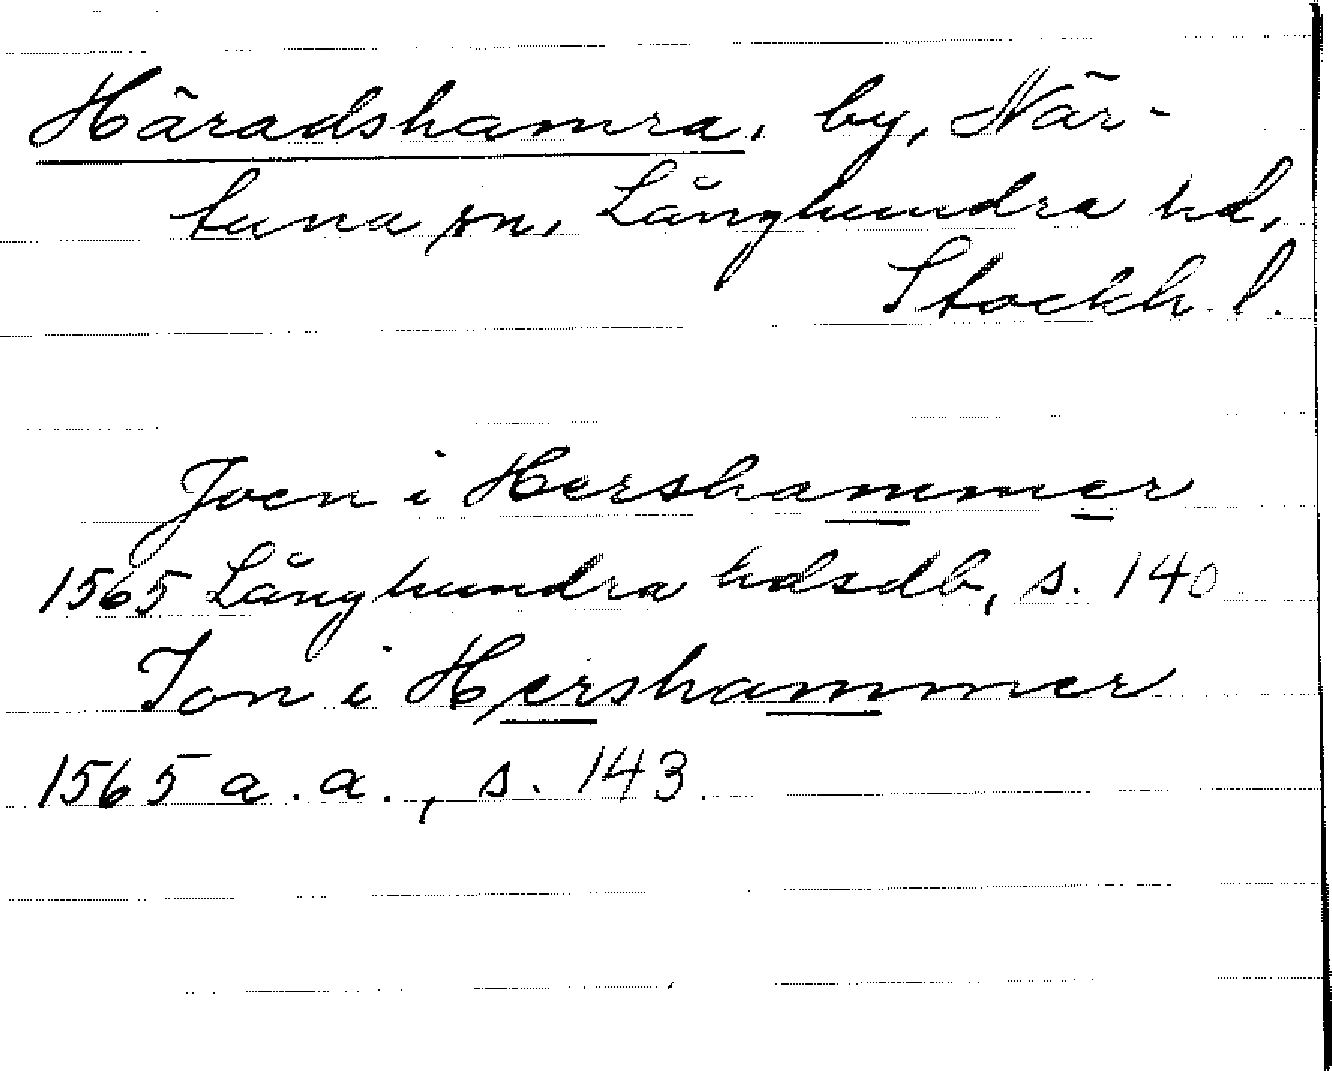 Häradshamra, by, När-
tuna sn, Långhundra hd,
Stockh. l.
Joen i Hershammer
1565 Långhundra hdsdb, s. 140
Jon i Hershammer
1565 a.a., s. 143